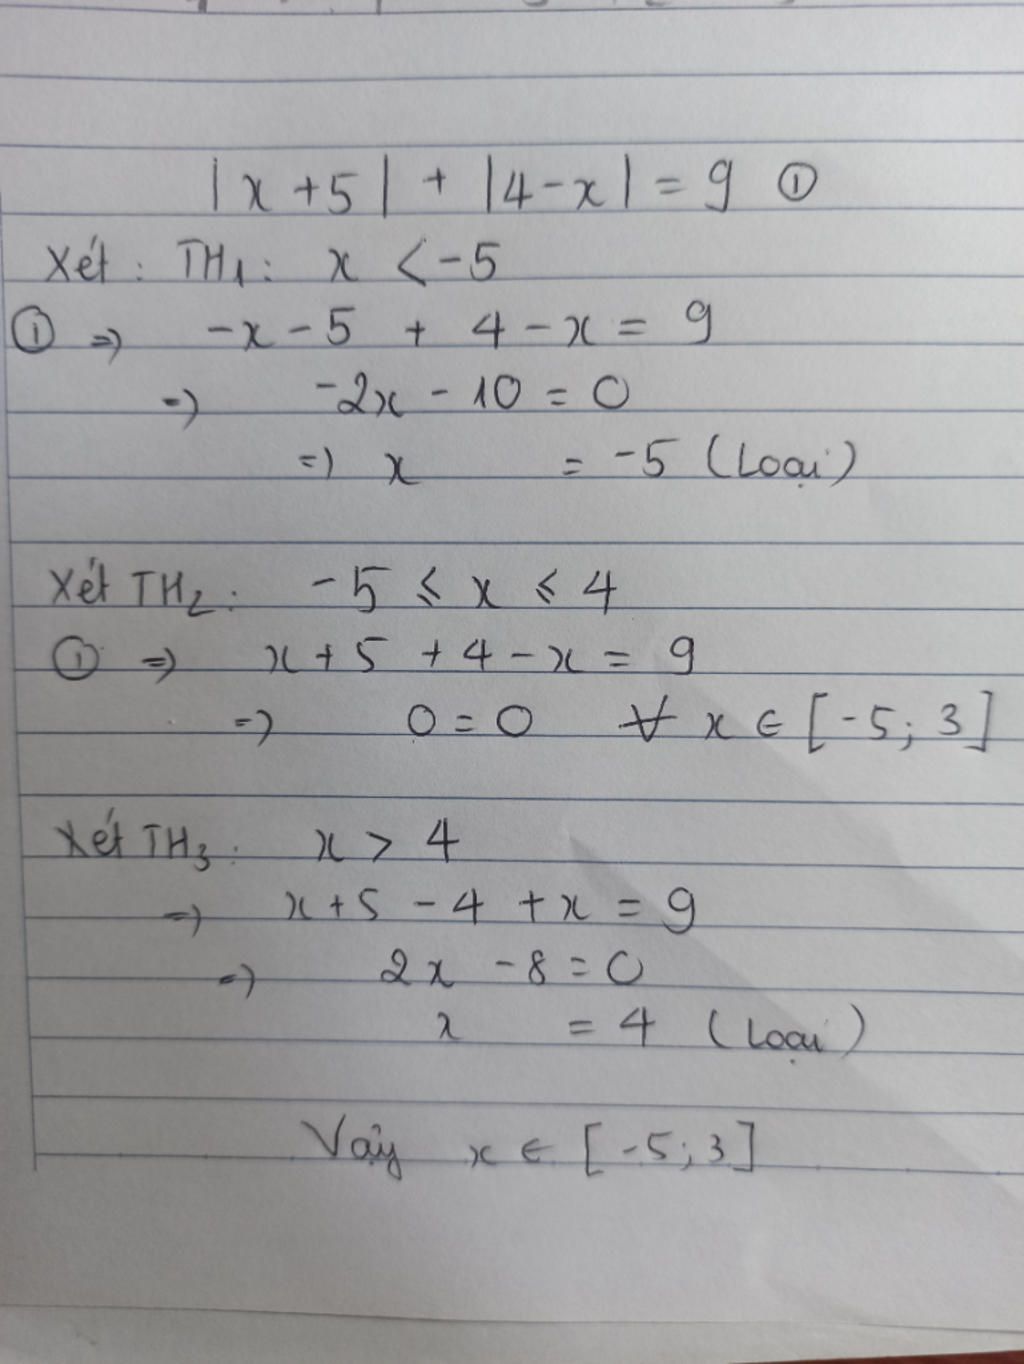 |x+5| + |4-x| = 9 ①
Xét: TH1: x < -5
① => -x - 5 + 4 - x = 9
=> -2x - 10 = 0
=> x = -5 (Loại)
Xét TH2: -5 ≤ x ≤ 4
① => x + 5 + 4 - x = 9
=> 0 = 0 ∀ x ∈ [-5; 3]
Xét TH3: x > 4
=> x + 5 - 4 + x = 9
=> 2x - 8 = 0
x = 4 (Loại)
Vậy x ∈ [-5; 3]